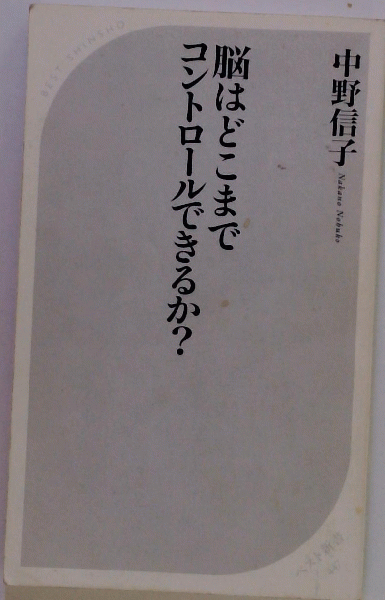 中野信子
Nakano Nobuko
脳はどこまで
コントロールできるか？
BEST SHINSHO